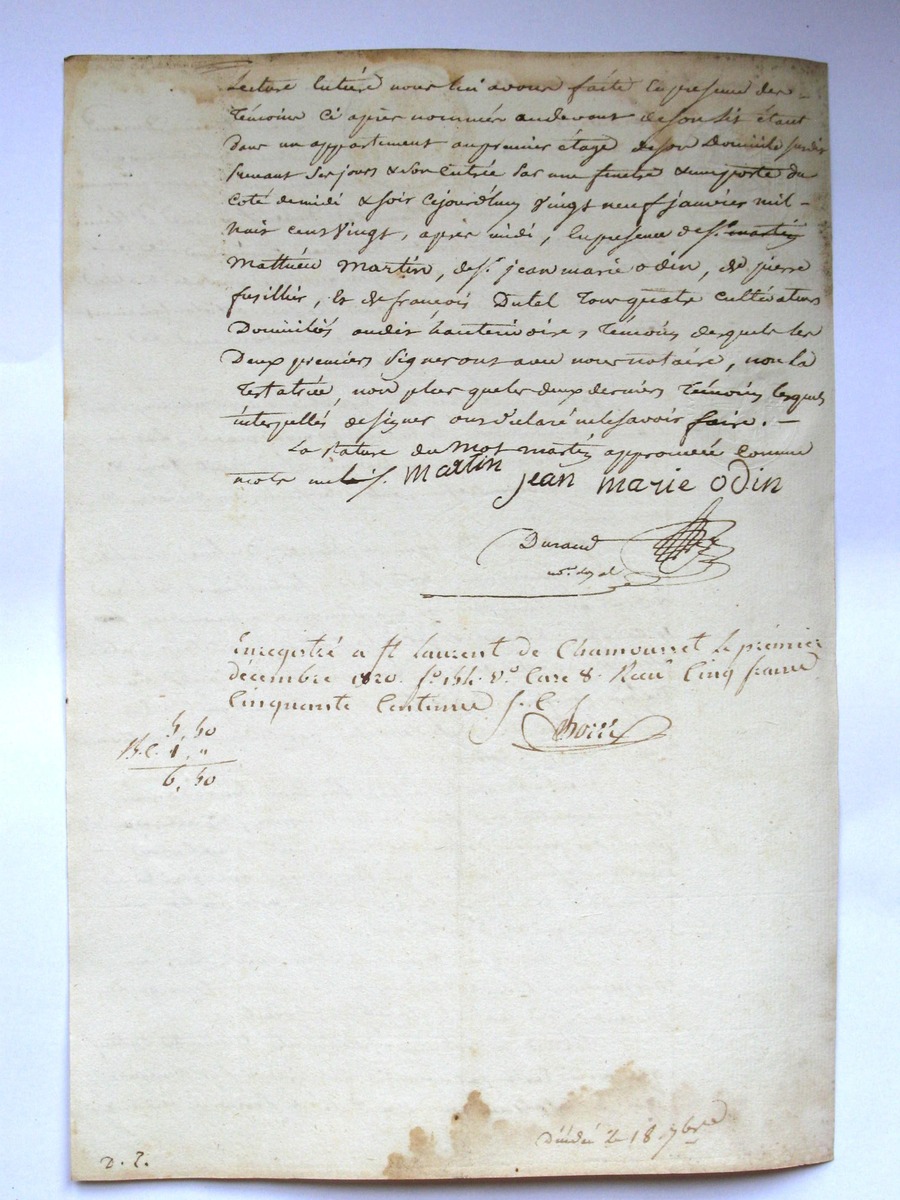 Lecture entière nous lui avons faite en presence des
Témoins ci après nommés audevant de son lit étant
dans un appartement au premier étage de son Domicile susdit
prenant ses jours & son entrée par une fenetre & une porte du
coté de midi & soir cejourd'hui vingt neuf janvier mil
huit cent vingt, après midi, en presence de sr. martin
Mathieu Martin, de sr. jean marie odin, de pierre
fusillier, & de francois Dutel tous quatre cultivateurs
Domiciliés audit hauterivoire, Témoins desquels les
Deux premiers signeront avec nous notaire, non la
Testatrice, non plus que les deux derniers Témoins lesquels
interpellés de signer ont déclaré ne le savoir faire. —
La rature du mot martin approuvée comme
mots nul. martin jean marie odin
Durand
nre. royal
Enregistré a st Laurent de Chamousset le premier
décembre 1820. fo. 154. vo. Case 8. Recu Cinq francs
Cinquante Centimes
5, 50
1, "
6, 50
2 18 7bre
D. T.